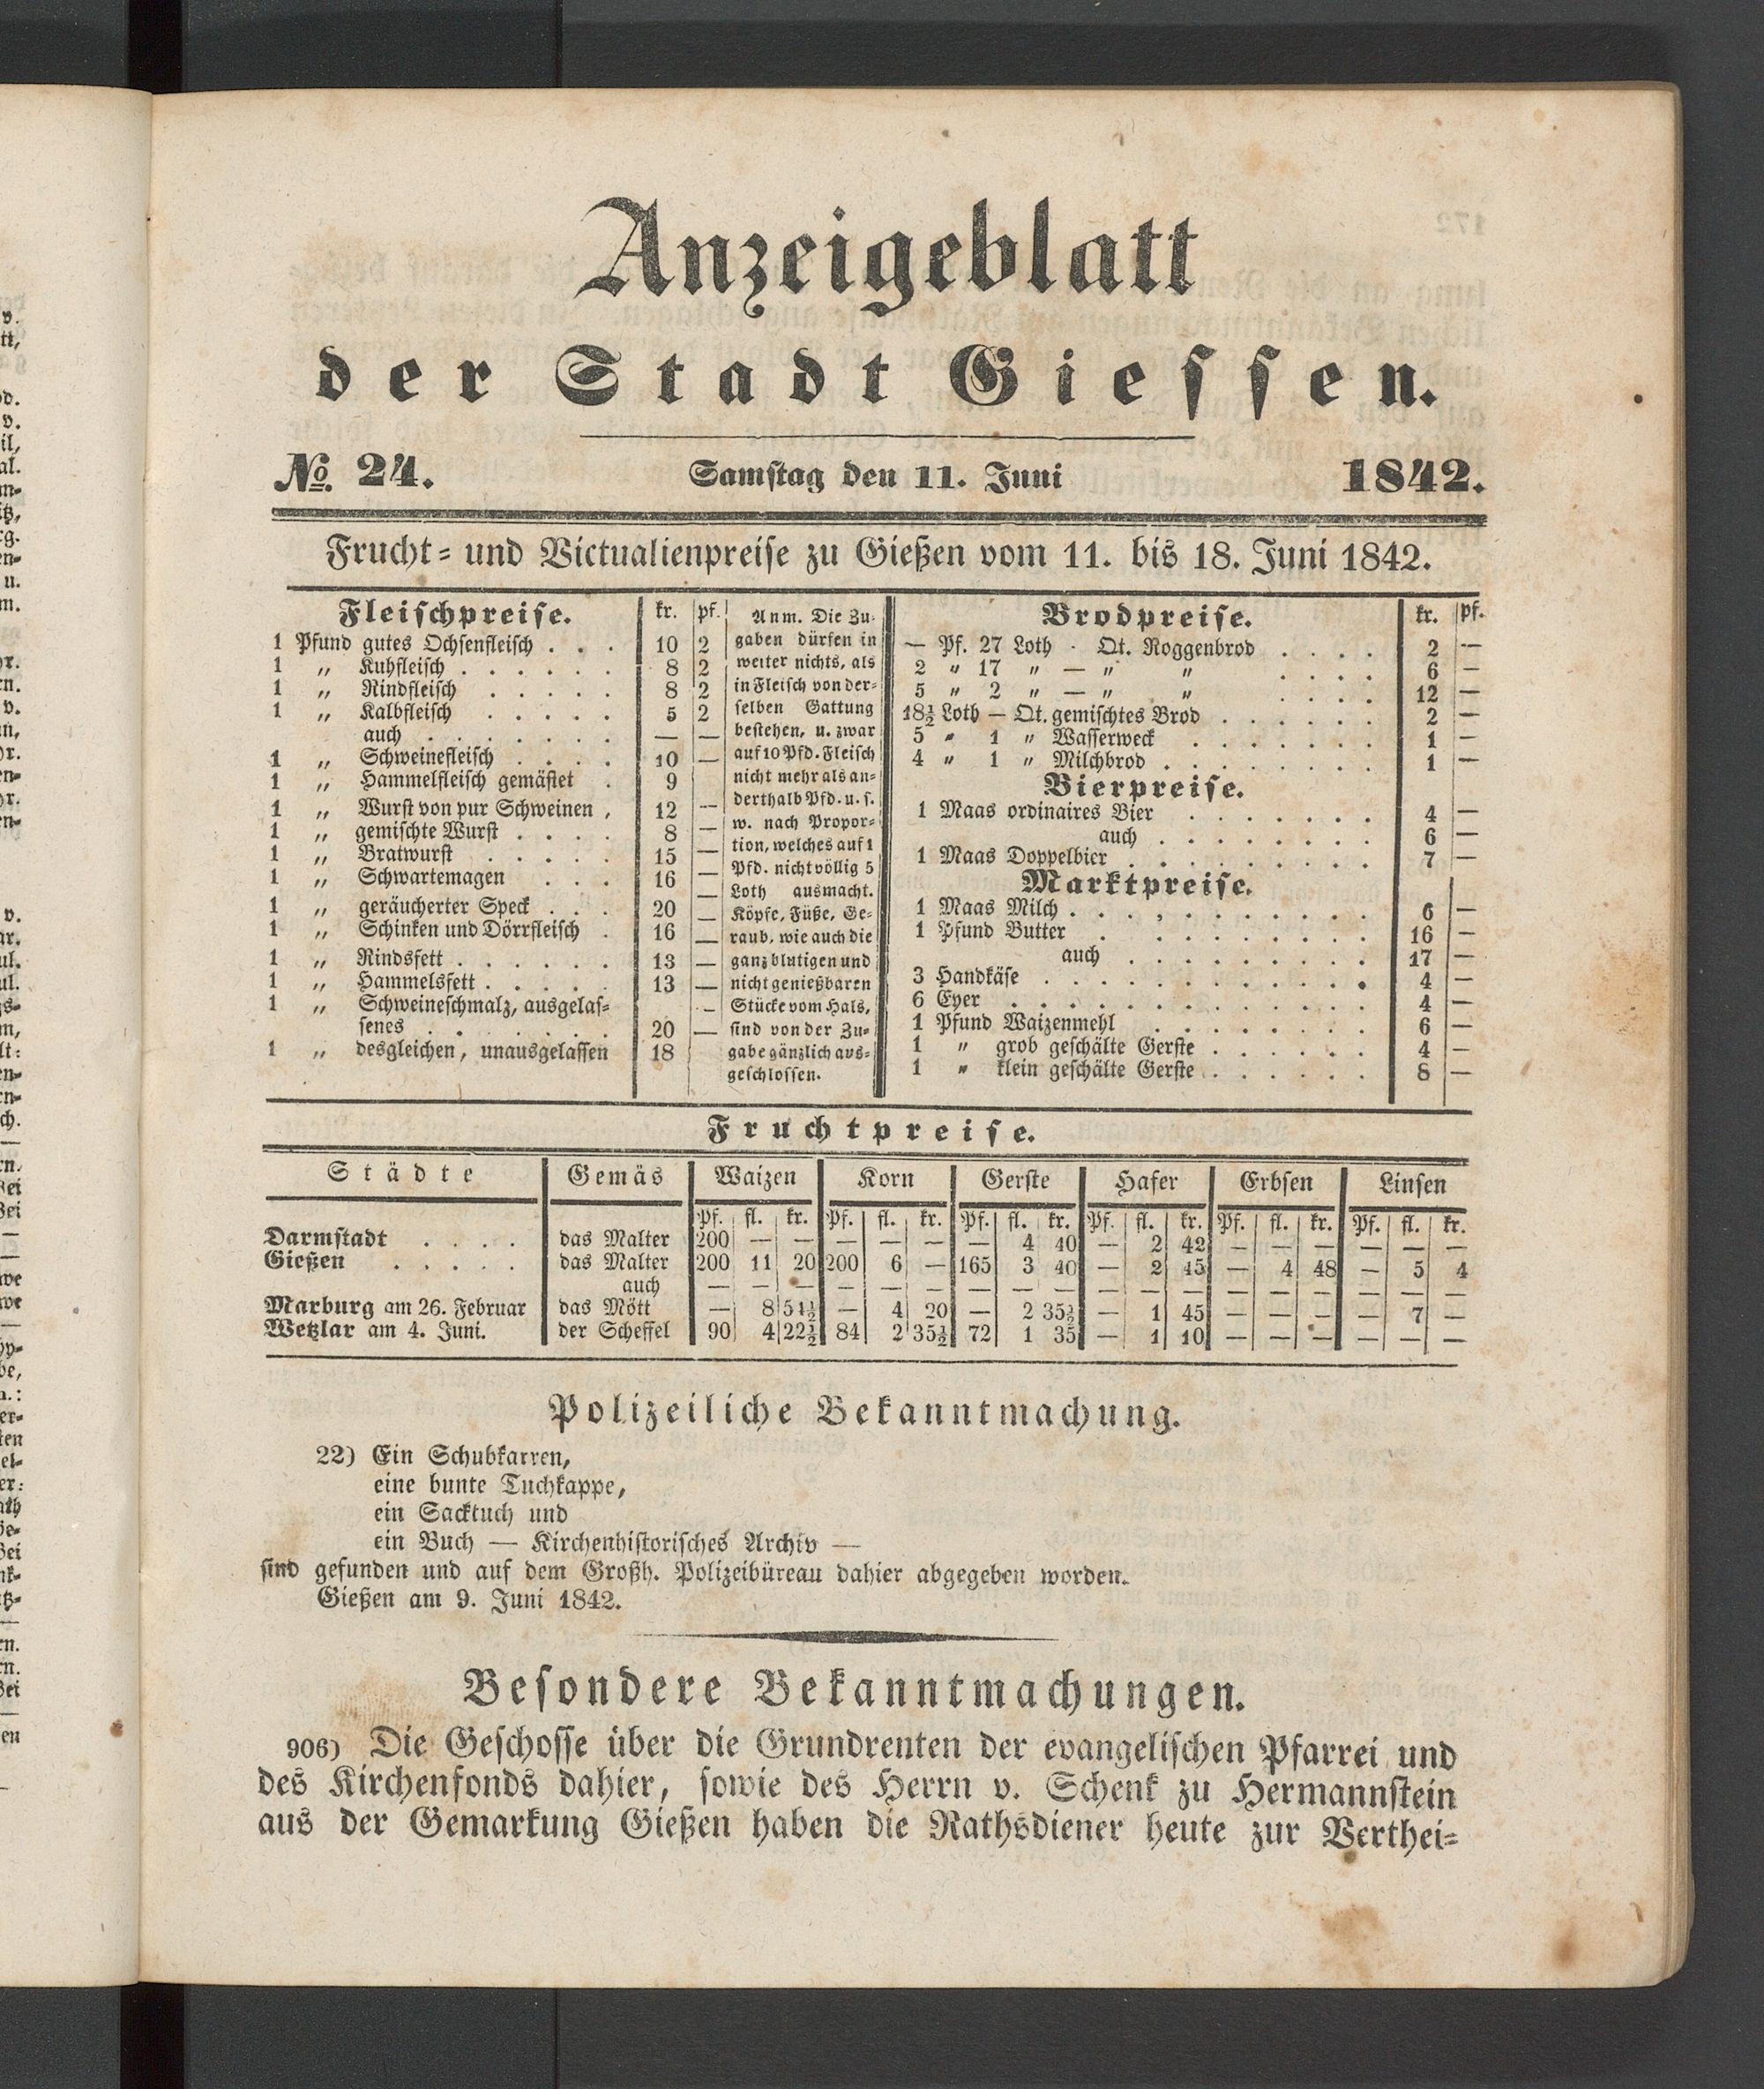 Anzeigeblatt
der Stadt Giessen.
No. 24. Samstag den 11. Juni 1842.
Frucht- und Victualienpreise zu Gießen vom 11. bis 18. Juni 1842.
Fleischpreise. kr. pf.
1 Pfund gutes Ochsenfleisch . . . 10 2
1 „ Kuhfleisch . . . . . . 8 2
1 „ Rindfleisch . . . . . 8 2
1 „ Kalbfleisch . . . . . 5 2
auch . . . . . . . — —
1 „ Schweinefleisch . . . . 10 —
1 „ Hammelfleisch gemästet . 9
1 „ Wurst von pur Schweinen , 12 —
1 „ gemischte Wurst . . . . 8 —
1 „ Bratwurst . . . . . 15 —
1 „ Schwartemagen . . . 16 —
1 „ geräucherter Speck . . . 20 —
1 „ Schinken und Dörrfleisch . 16 —
1 „ Rindsfett . . . . . . 13 —
1 „ Hammelsfett . . . . . 13 —
1 „ Schweineschmalz, ausgelas- –
senes . . . . . . . 20 —
1 „ desgleichen, unausgelassen 18
Anm. Die Zu-
gaben dürfen in
weiter nichts, als
in Fleisch von der-
selben Gattung
bestehen, u. zwar
auf 10 Pfd. Fleisch
nicht mehr als an-
derthalb Pfd. u. s.
w. nach Propor-
tion, welches auf 1
Pfd. nicht völlig 5
Loth ausmacht.
Köpfe, Füße, Ge-
raub, wie auch die
ganz blutigen und
nicht genießbaren
Stücke vom Hals,
sind von der Zu-
gabe gänzlich aus-
geschlossen.
Brodpreise. kr. pf.
— Pf. 27 Loth · Qt. Roggenbrod . . . . 2 —
2 „ 17 „ — „ „ . . . . 6 —
5 „ 2 „ — „ „ . . . . 12 —
18½ Loth — Qt. gemischtes Brod . . . . . . 2 —
5 „ 1 „ Wasserweck . . . . . . . 1 —
4 „ 1 „ Milchbrod . . . . . . . . 1 —
Bierpreise.
1 Maas ordinaires Bier . . . . . . . 4 —
auch . . . . . . . . 6 —
1 Maas Doppelbier . . . . . . . . . 7 —
Marktpreise.
1 Maas Milch . . . , . . . . . . . 6 —
1 Pfund Butter . . . . . . . . . 16 —
auch . . . . . . . . . 17 —
3 Handkäse . . . . . . . . . . . 4 —
6 Eyer . . . . . . . . . . . . 4 —
1 Pfund Waizenmehl . . . . . . . . 6 —
1 „ grob geschälte Gerste . . . . . . 4 —
1 „ klein geschälte Gerste . . . . . . 8 —
Fruchtpreise.
Städte Gemäs Waizen Korn Gerste Hafer Erbsen Linsen
Pf. fl. kr. Pf. fl. kr. Pf. fl. kr. Pf. fl. kr. Pf. fl. kr. Pf. fl. kr.
Darmstadt . . . . das Malter 200 — — — — — — 4 40 — 2 42 — — — — — —
Gießen . . . . . das Malter 200 11 20 200 6 — 165 3 40 — 2 45 — 4 48 — 5 4
auch — — — — — — — — — — — — — — — — — —
Marburg am 26. Februar das Mött — 8 51½ — 4 20 — 2 35½ — 1 45 — — — — 7 —
Wetzlar am 4. Juni. der Scheffel 90 4 22½ 84 2 35½ 72 1 35 — 1 10 — — — — — —
Polizeiliche Bekanntmachung.
22) Ein Schubkarren,
eine bunte Tuchkappe,
ein Sacktuch und
ein Buch — Kirchenhistorisches Archiv —
sind gefunden und auf dem Großh. Polizeibüreau dahier abgegeben worden.
Gießen am 9. Juni 1842.
Besondere Bekanntmachungen.
906) Die Geschosse über die Grundrenten der evangelischen Pfarrei und
des Kirchenfonds dahier, sowie des Herrn v. Schenk zu Hermannstein
aus der Gemarkung Gießen haben die Rathsdiener heute zur Verthei-